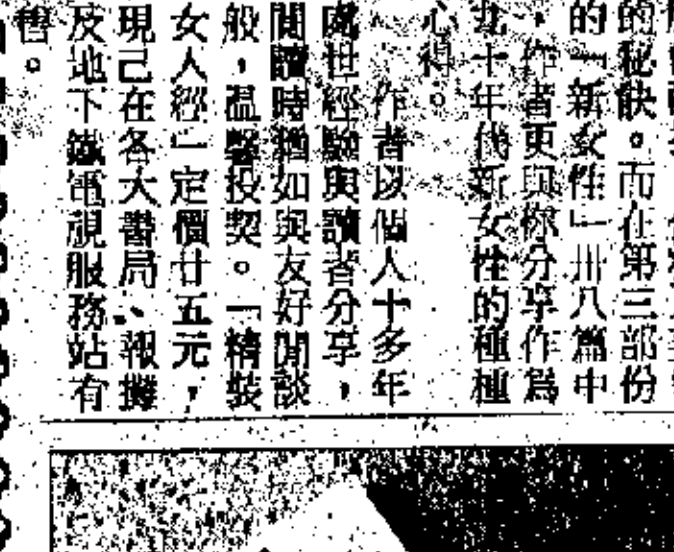 的秘訣。而在第三部份
的「新女性」卅八篇中
，作者更與你分享作為
九十年代新女性的種種
心得。
作者以個人十多年
處世經驗與讀者分享，
閱讀時猶如與友好閒談
般，溫馨投契。「精裝
女人經」定價廿五元，
現己在各大書局、報攤
及地下鐵電視服務站有
售。